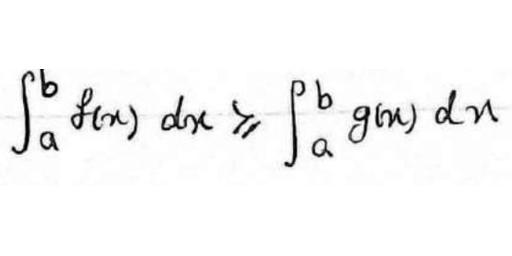 ∫_a^b f(x) dx ⩾ ∫_a^b g(x) dx